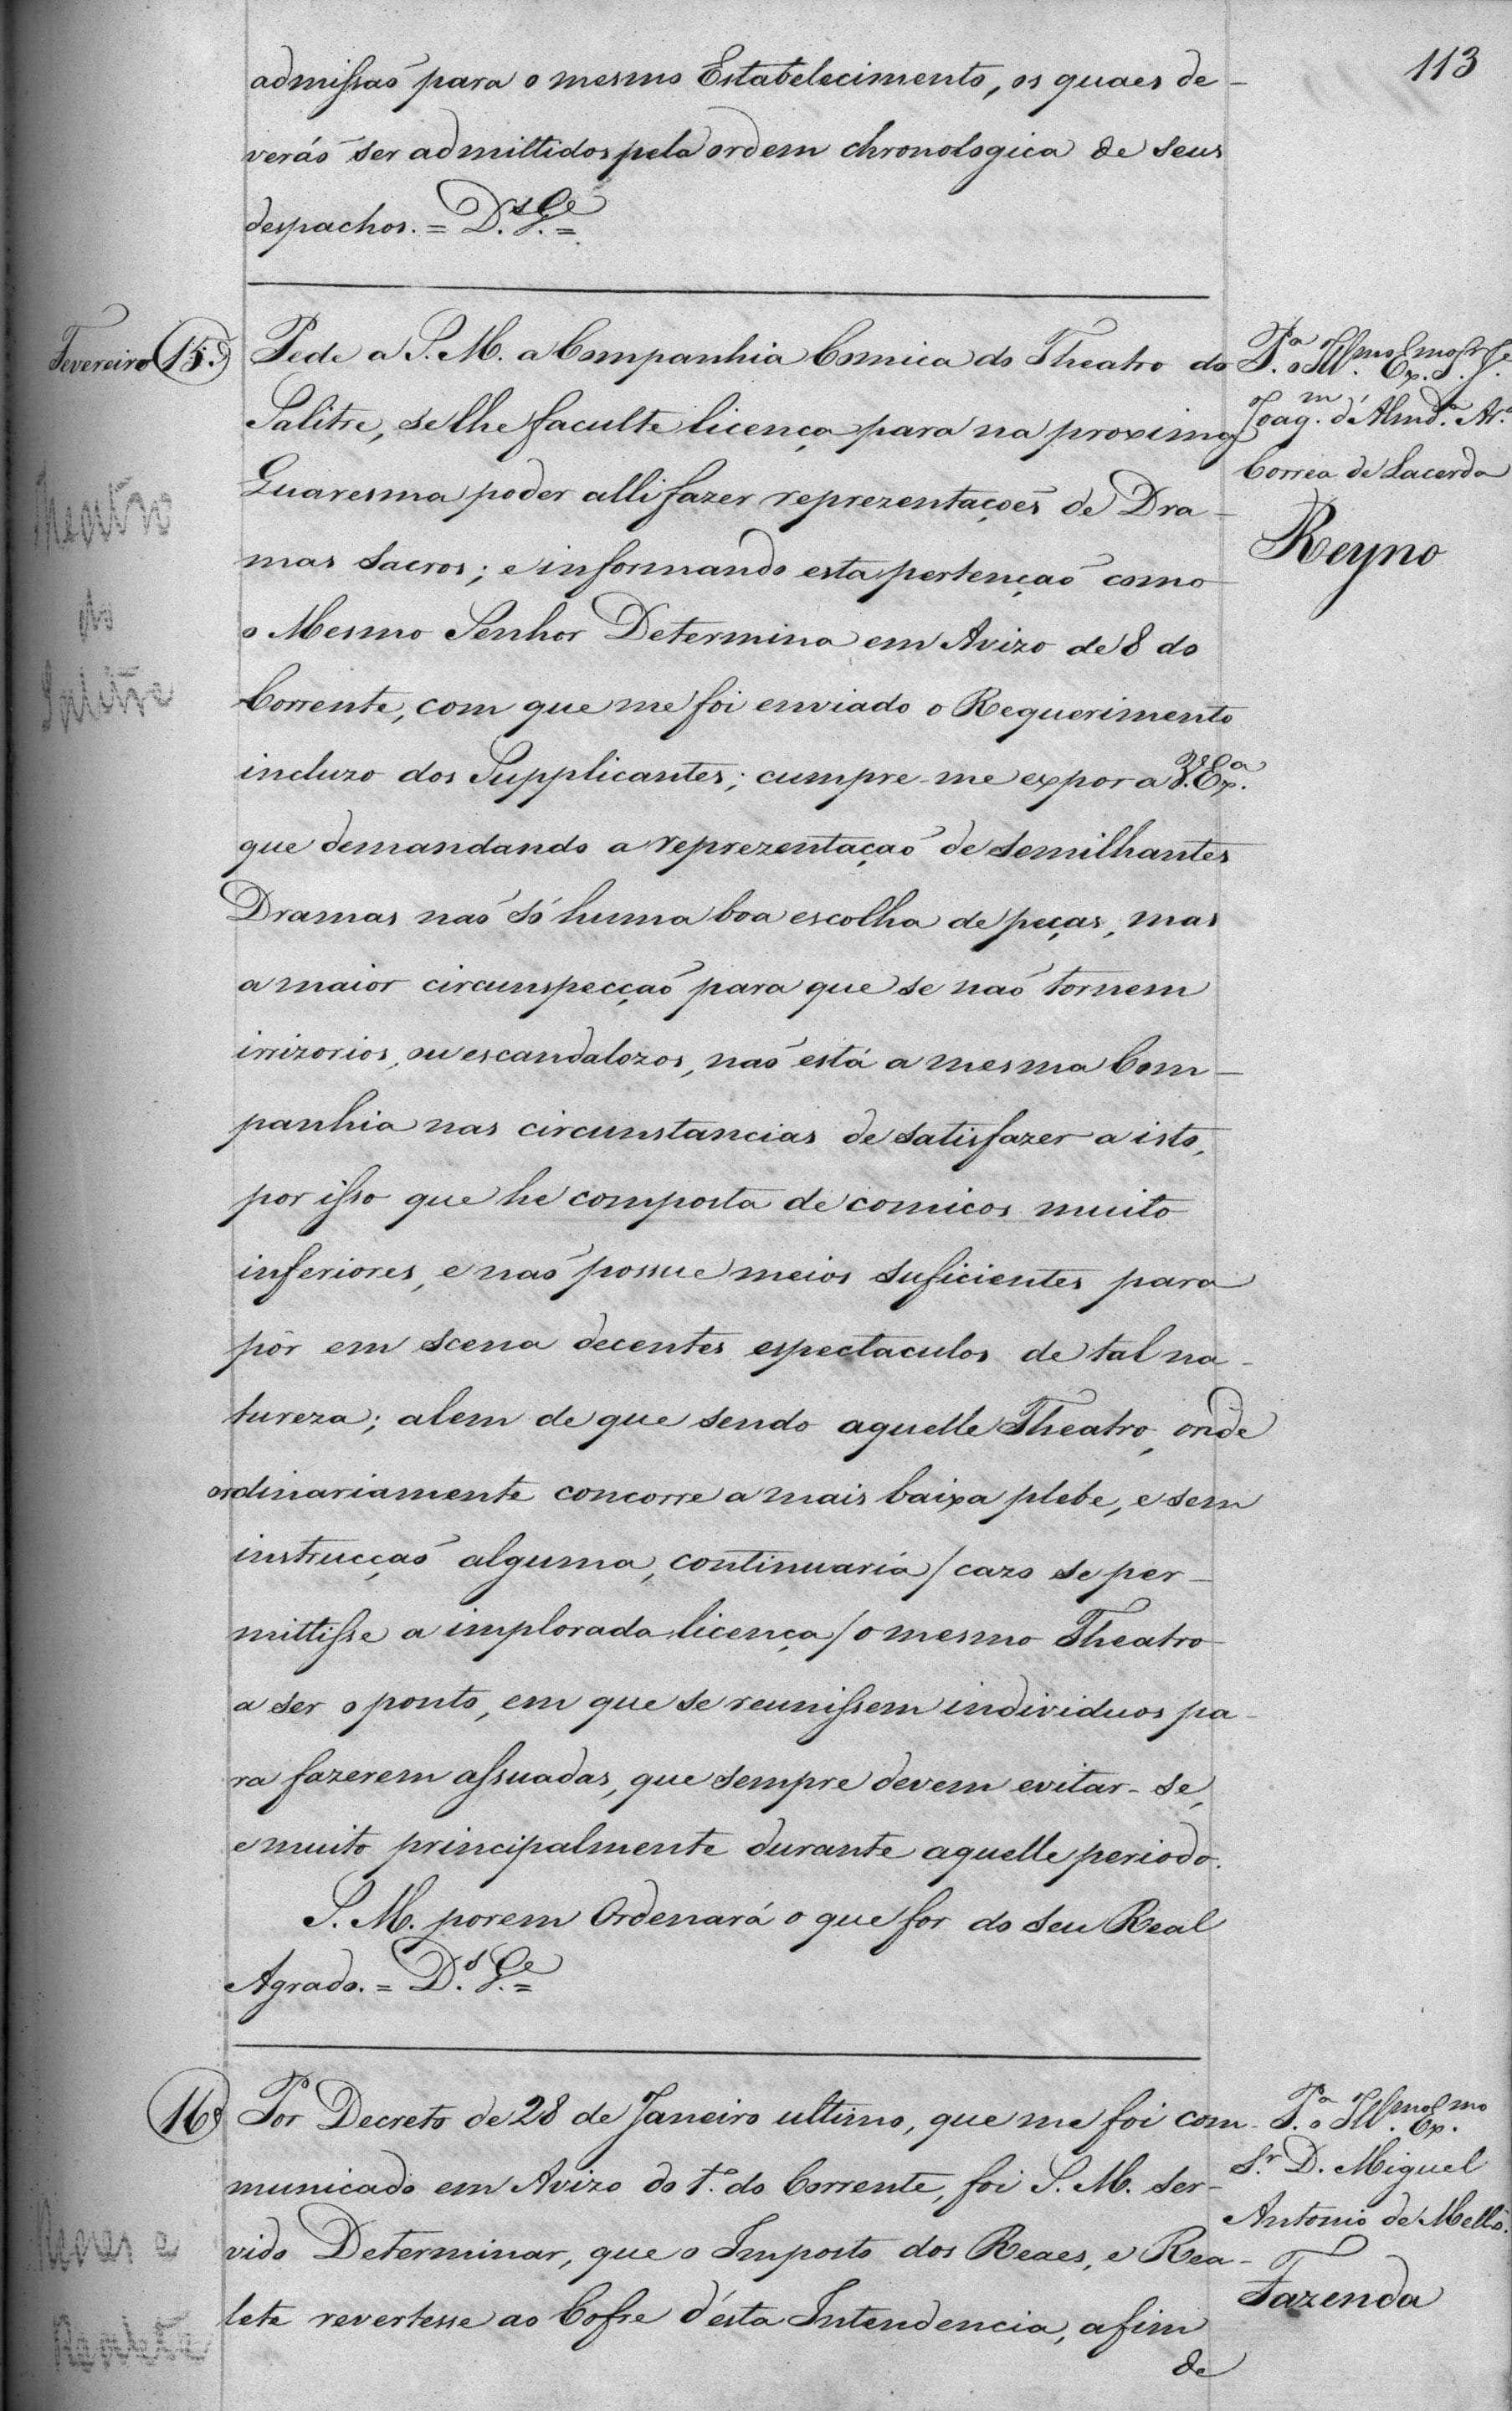 113
admissaõ para o mesmo Estabelecimento, os quaes de-
veráõ ser admittidos pela ordem chronologica de seus
despachos. = D.s G.e =
Fevereiro 15.
Pede a S. M. a Companhia Comica do Theatro do
Salitre, se lhe faculte licença para na proxima
Quaresma poder alli fazer reprezentaçoẽs de Dra-
mas Sacros; e informando esta pertençaõ como
o Mesmo Senhor Determina em Avizo de 8 do
Corrente, com que me foi enviado o Requerimento
incluzo dos Supplicantes; cumpre-me expor a V. Ex.a
que demandando a reprezentaçaõ de semilhantes
Dramas naõ só huma boa escolha de peças, mas
a maior circunspecçaõ para que se naõ tornem
irrizorios, ou escandalozos, naõ está a mesma Com-
panhia nas circunstancias de satisfazer a isto,
por isso que he composta de comicos muito
inferiores, e naõ possue meios suficientes para
pôr em scena decentes espectaculos de tal na-
tureza; alem de que sendo aquelle Theatro, onde
ordinariamente concorre a mais baixa plebe, e sem
instrucçaõ alguma, continuaria / cazo se per-
mittisse a implorada licença / o mesmo Theatro
a ser o ponto, em que se reunissem individuos pa-
ra fazerem assuadas, que sempre devem evitar-se,
e muito principalmente durante aquelle periodo.
S. M. porem Ordenará o que for do seu Real
Agrado. = D.s G.e =
P.a o Ill.mo Ex.mo Sr. Je
Joaq.m d'Almd.a Ar.o
Correa de Lacerda
Reyno
Theatro
do
Salitre
16
Por Decreto de 28 de Janeiro ultimo, que me foi com-
municado em Avizo do 1.o do Corrente, foi S. M. ser-
vido Determinar, que o Imposto dos Reaes, e Rea-
lete revertesse ao Cofre d'esta Intendencia, afim
de
P.a o Ill.mo Ex.mo
S.r D. Miguel
Antonio de Mello.
Fazenda
Reaes e
Realete